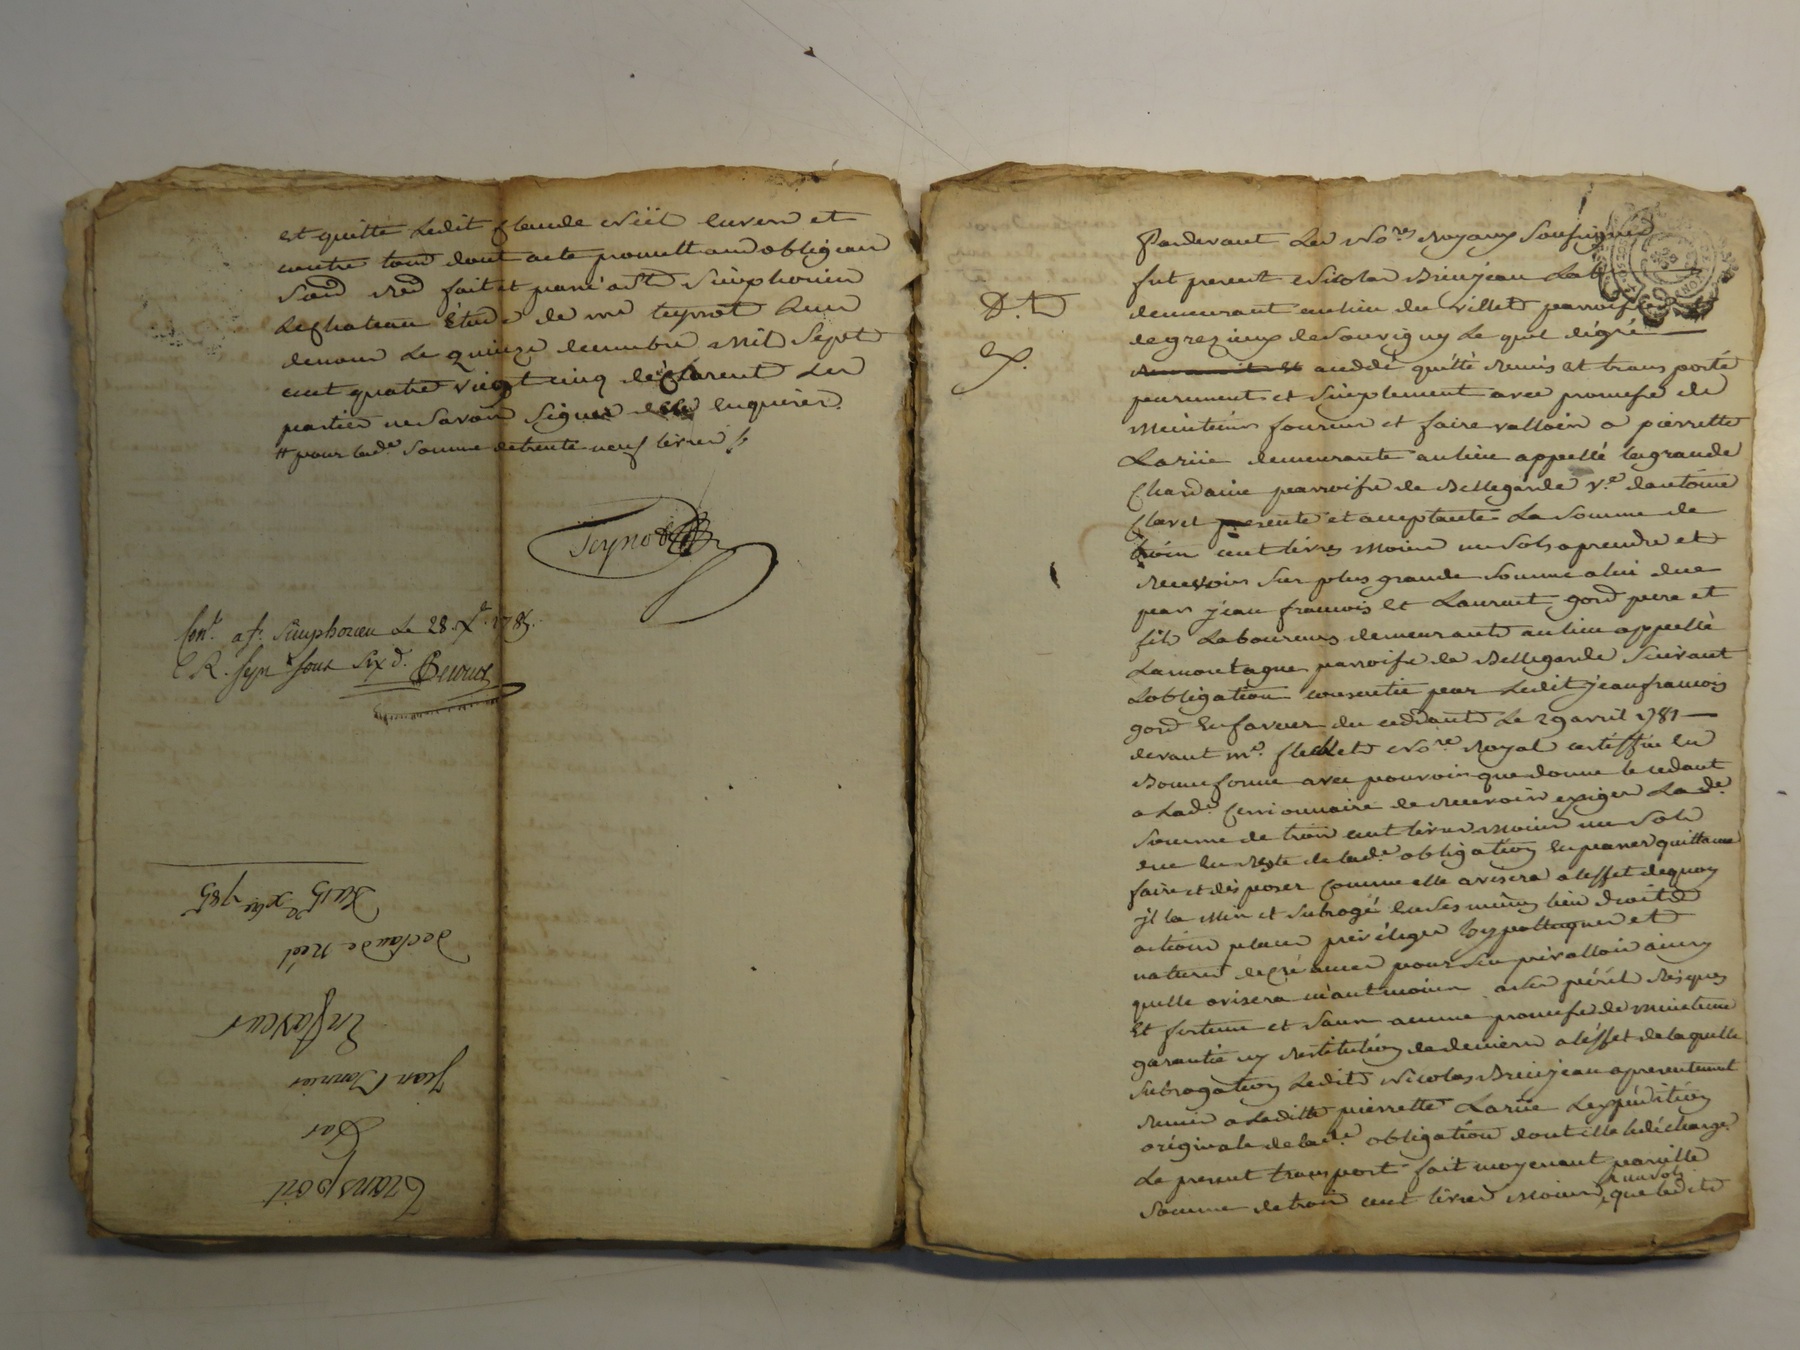 et quitte Ledit Claude Niël envers et
contre tous dont acte promettans obligeans
Soud Ren fait et passé a St Simphorien
Le Chateau Étude de me teynot L'un
de nous Le quinze decembre Mil Sept
cent quatre vingt cinq déclarent Les
parties ne Savoir Signer de ce Enquises
# pour lade Somme de trente neuf livres
Teynot
Cont. a St. Simphorien Le 28. Xbre 1785.
R. sept sous Six d.
Transport
Par
Jean
En faveur
de Claude Niel
Du 15 Xbre 1785
Pardevant Les Nores Royaux Soussignés
fut present Nicolas Bruyeau Lab
demeurant au lieu du Villet parroisse
de grezieux de Souvigny Le quel de gré
a cedé quitté remis et transporté
purement et Simplement avec promesse de
Maintenir fournir et faire valloir a pierrette
Larüe demeurante au lieu appellé la grande
Charaine parroisse de Bellegarde Ve d'antoine
Claret presente et acceptante La Somme de
trois cent livres Moins un Sols a prendre et
recevoir Sur plus grande Somme a lui due
par jean francois et Laurent gord pere et
fils Laboureurs demeurants au lieu appellé
La montagne parroisse de Bellegarde Suivant
L'obligation consentie par Ledit jean francois
gord En faveur du cedant Le 29 avril 1781
devant me. Nore Royal certiffiée En
Bonne forme avec pouvoir que donne le cedant
a Lade Cessionnaire de recevoir exiger Lade
Somme de trois cent livres Moins un Sols
due En reste de lade obligation En passer quittance
faire et disposer Comme elle avisera a l'effet de quoy
jl la Mise et Subrogé En Ses mêmes lieu droits
actions places privileges hypotheques et
natures de Créances pour s'en prévalloir ainsy
quelle avisera néantmoins a Ses péril risques
Et fortune et Sans aucune promesse de maintenue
garantie ny restitution de deniers a l'effet de laquelle
Subrogation Ledit Nicolas Bruyeau a presentement
remis a Laditte pierrette Larüe L'expédition
originale de lade obligation dont elle le décharge
Le present transport fait moyenant pareille
Somme de trois cent livres Moins un sols que ledit
D. D
Ex.